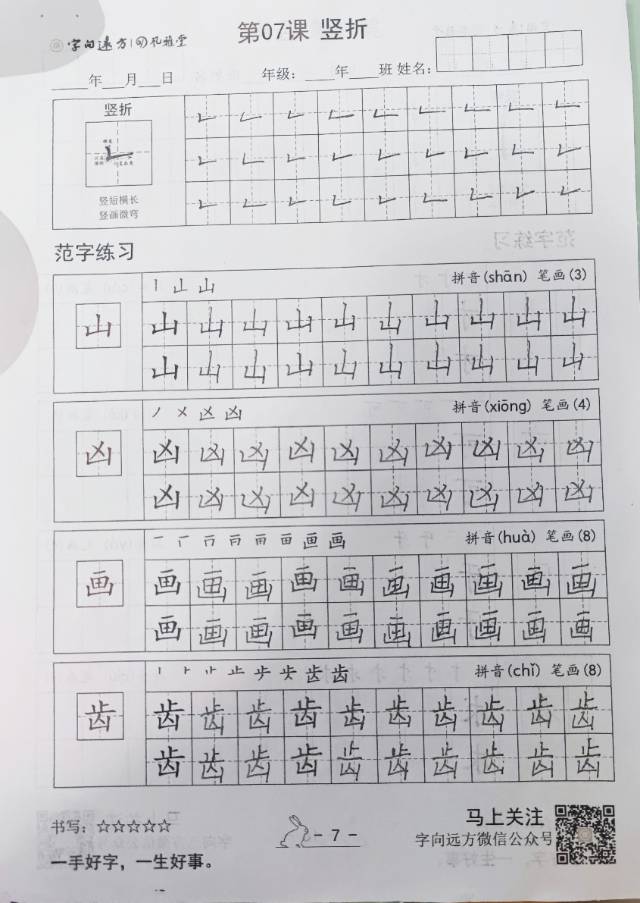 字向远方
第07课 竖折
____年___月___日 年级：____年____班 姓名：
竖折
竖短横长
竖画微弯
范字练习
丨 山 山 拼音(shān) 笔画(3)
山 山 山 山 山 山 山 山 山 山 山
山 山 山 山 山 山 山 山 山 山
凶 凶 拼音(xiōng) 笔画(4)
凶 凶 凶 凶 凶 凶 凶 凶 凶 凶 凶
凶 凶 凶 凶 凶 凶 凶 凶 凶 凶
画 画 拼音(huà) 笔画(8)
画 画 画 画 画 画 画 画 画 画 画
画 画 画 画 画 画 画 画 画 画
齿 齿 拼音(chǐ) 笔画(8)
齿 齿 齿 齿 齿 齿 齿 齿 齿 齿 齿
齿 齿 齿 齿 齿 齿 齿 齿 齿 齿
书写：☆☆☆☆☆
一手好字，一生好事。
- 7 -
马上关注
字向远方微信公众号